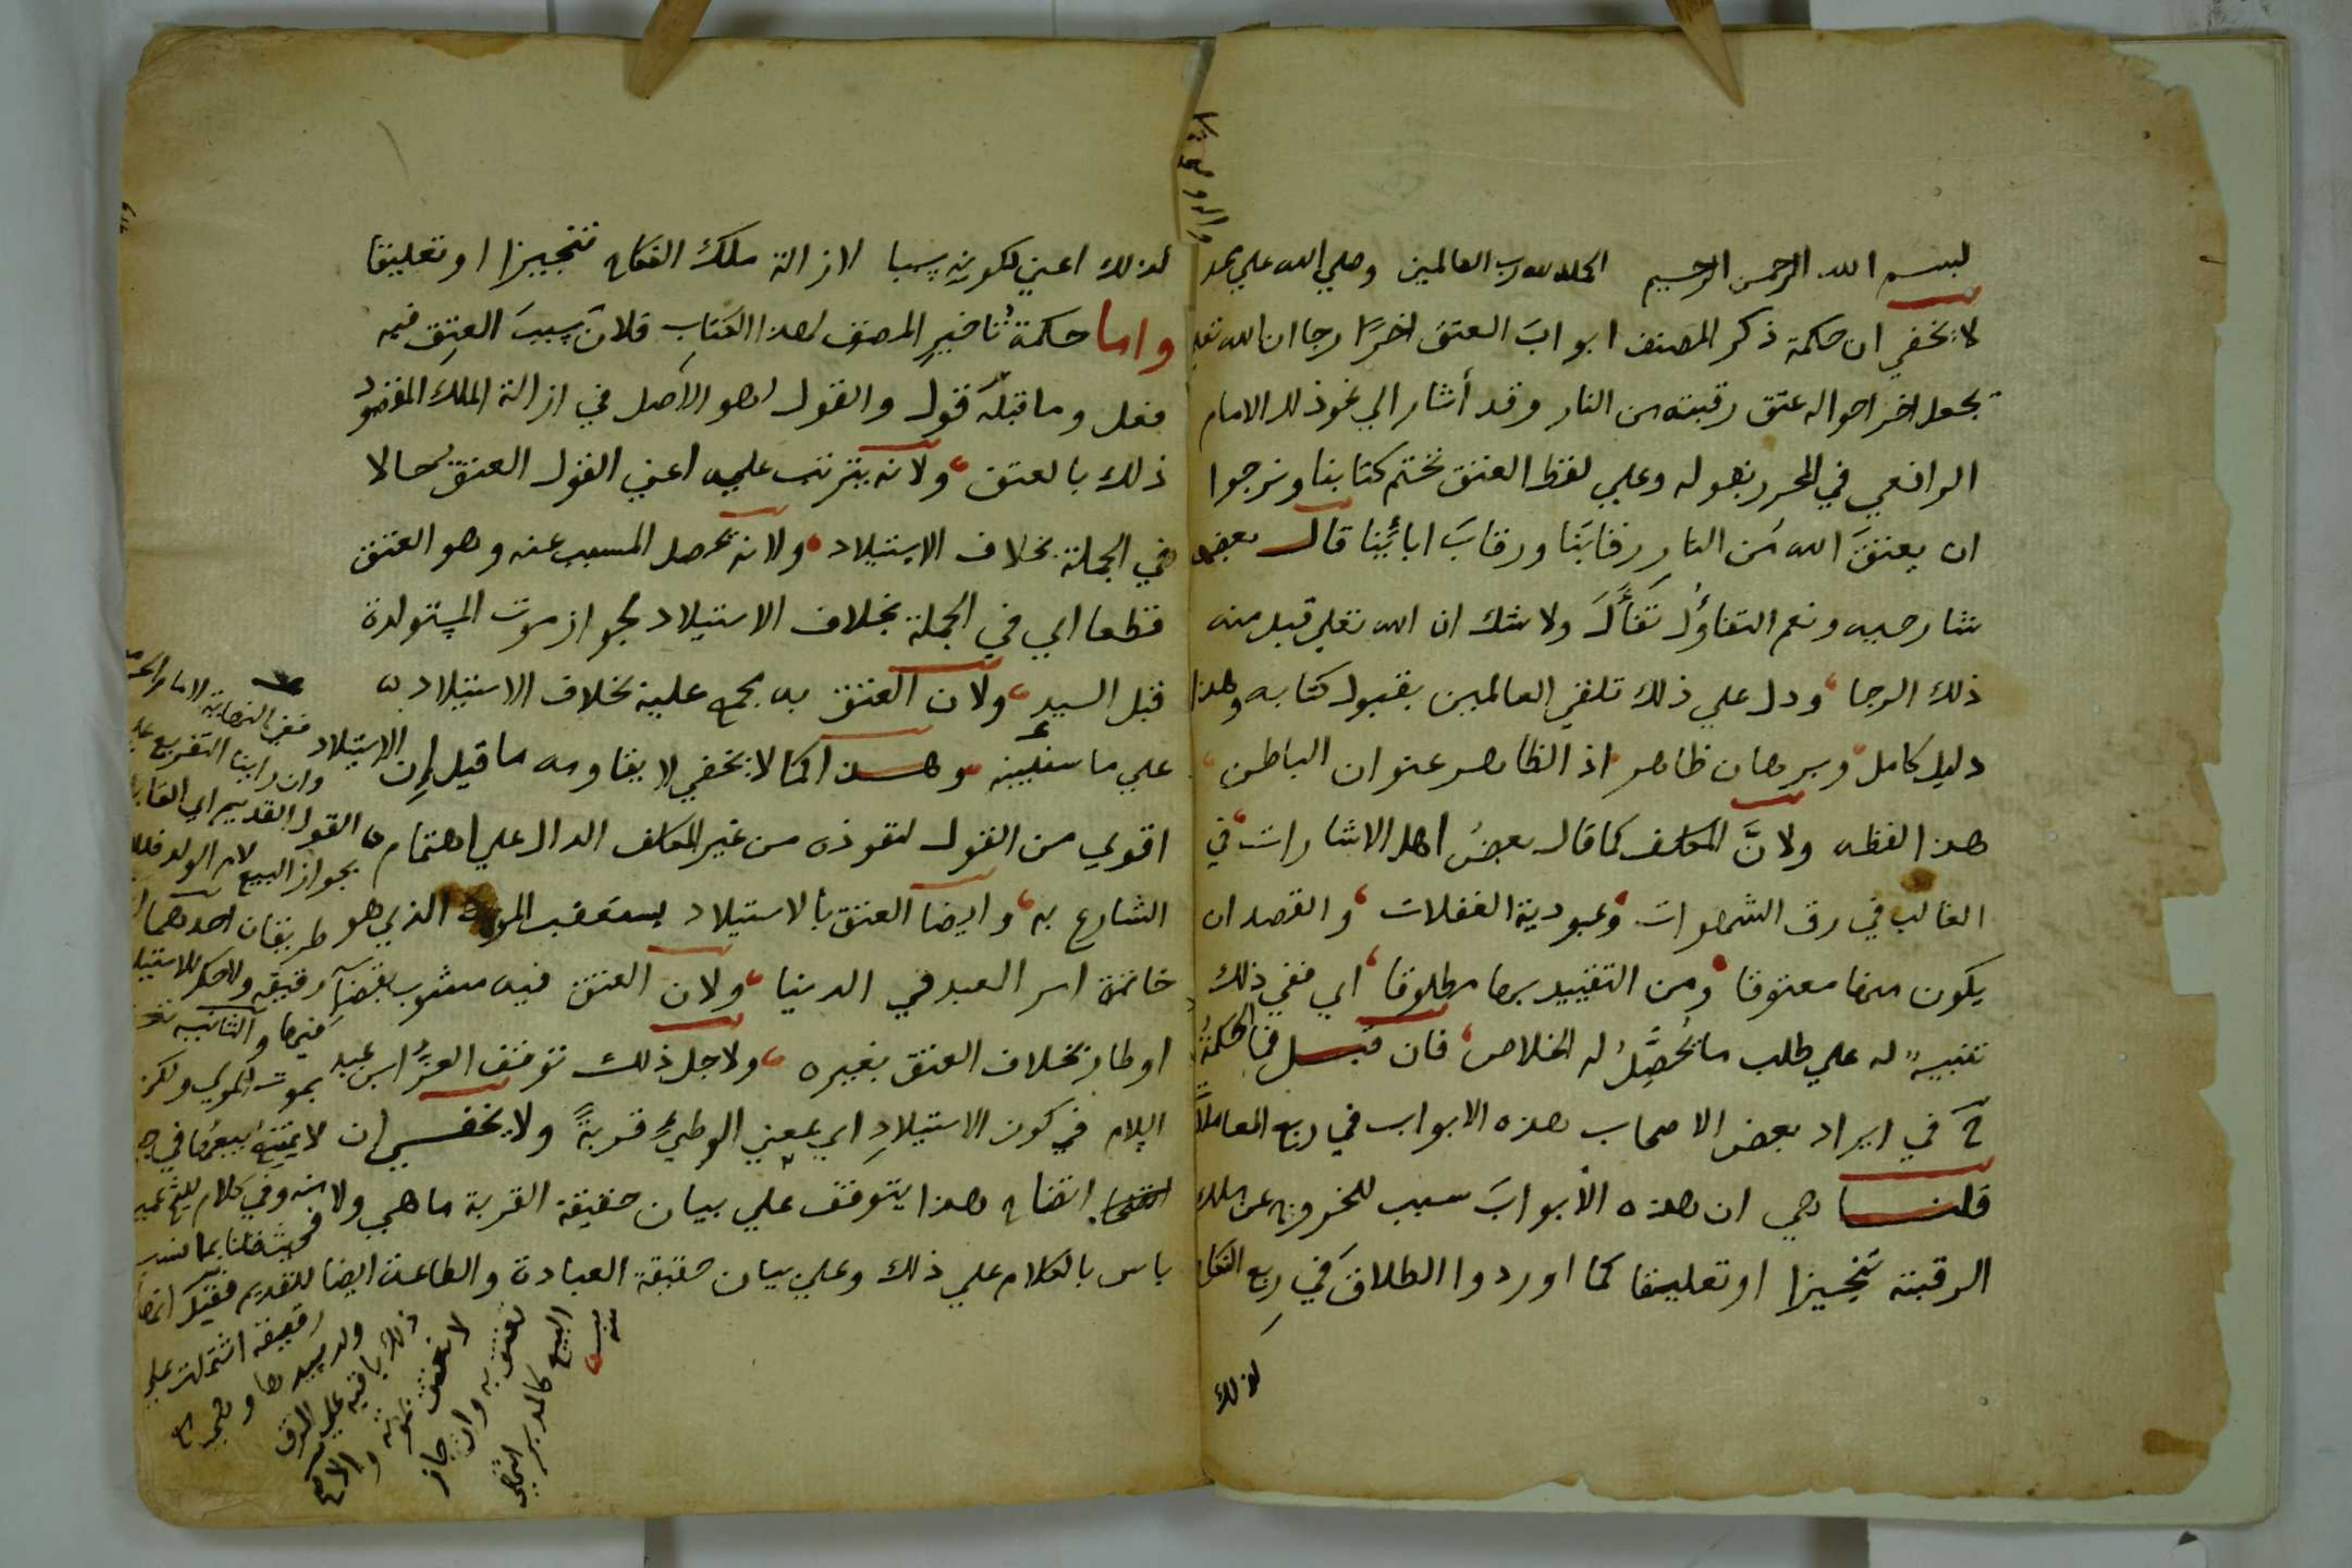 بسم الله الرحمن الرحيم الحمد لله رب العالمين وصلي الله علي محمد
لا يخفي ان حكمة ذكر المصنف ابوابَ العتق اخرًا رجا ان الله تعلي
يجعل اخر احواله عتق رقبته من النار وقد أشار الي نحو ذلك الامام
الرافعي في المحرر بقوله وعلي لفظ العتق نختم كتابنا ونرجوا
ان يعتقَ الله من النار رقابَنا ورقابَ ابائِنا قال بعض
شارحيه ونعم التفاؤل تفأَّلَ ولا شك ان الله تعلي قبل منه
ذلك الرجا ودل علي ذلك تلقي العالمين بقبول كتابه وهذا
دليل كامل وبرهان ظاهر اذ الظاهر عنوان الباطن
هذا لفظه ولانَّ المكلف كما قال بعضُ اهل الاشارات في
الغالب في رق الشهوات وعبودية الغفلات والقصد ان
يكون منها معتوقا ومن التقييد بها مطلوقا اي ففي ذلك
تنبيه له علي طلب ما يُحصِّلُ له الخلاص فان قيل فما الحكمةُ
ح في ايراد بعض الاصحاب هذه الابواب في ربع المعاملات
قلنا هي ان هذه الأبوابَ سبب للخروج عن ملك
الرقبة تنجيزا او تعليقا كما اوردوا الطلاقَ في ربع النكاح
لذلك
لذلك اعني لكونه سببا لازالة ملك النكاح تنجيزا او تعليقا
واما حكمة تاخير المصنف لهذا الكتابِ فلانَّ سببَ العتق فيه
فعل وما قبله قول والقول هو الاصل في ازالة الملك المقصود
ذلك بالعتق ولانه يترتب عليه اعني القول العتق حالا
في الجملة بخلاف الاستيلاد ولانه يحصل المسبب عنه وهو العتق
قطعا اي في الجملة بخلاف الاستيلاد لجواز موت المستولدة
قبل السيد ولان العتق به مجمع عليه بخلاف الاستيلاد
علي ما سنُبيِّنه وهذا كما لا يخفي لا يقاومه ما قيل إن الاستيلاد
اقوي من القول لنفوذه من غير المكلف الدال علي اهتمام
الشارع به وايضا العتق بالاستيلاد يستعقب الموت الذي هو
خاتمة امر العبد في الدنيا ولان العتق فيه مشوب بقضآء
اوطار بخلاف العتق بغيره ولاجل ذلك توقف العزُّ ابن عبد
السلام في كون الاستيلادِ اي بمعني الوطيِ قربةً ولا يخفي ان
اتضاح هذا يتوقف علي بيان حقيقة القربة ما هي ولا
باس بالكلام علي ذلك وعلي بيان حقيقة العبادة والطاعة ايضا
ففي النهاية لامام الحرمين
وان راينا التفريع علي
القول القديم اي القايل
بجواز البيع لام الولد
طريقان احدهما
رقيقه ولا حكم للاستيلاد
فيها والثانيه
بموت المولي ولكن
لا يمتنع بيعها في
وفي كلام
للقديم فقيل انها
رقيقة اشتملت علي
ولد سيدها وهي
ذلك باقية علي الرق
لا تعتق بموته والاصح
تعتق به وان جاز
البيع كالمدبر انتهي